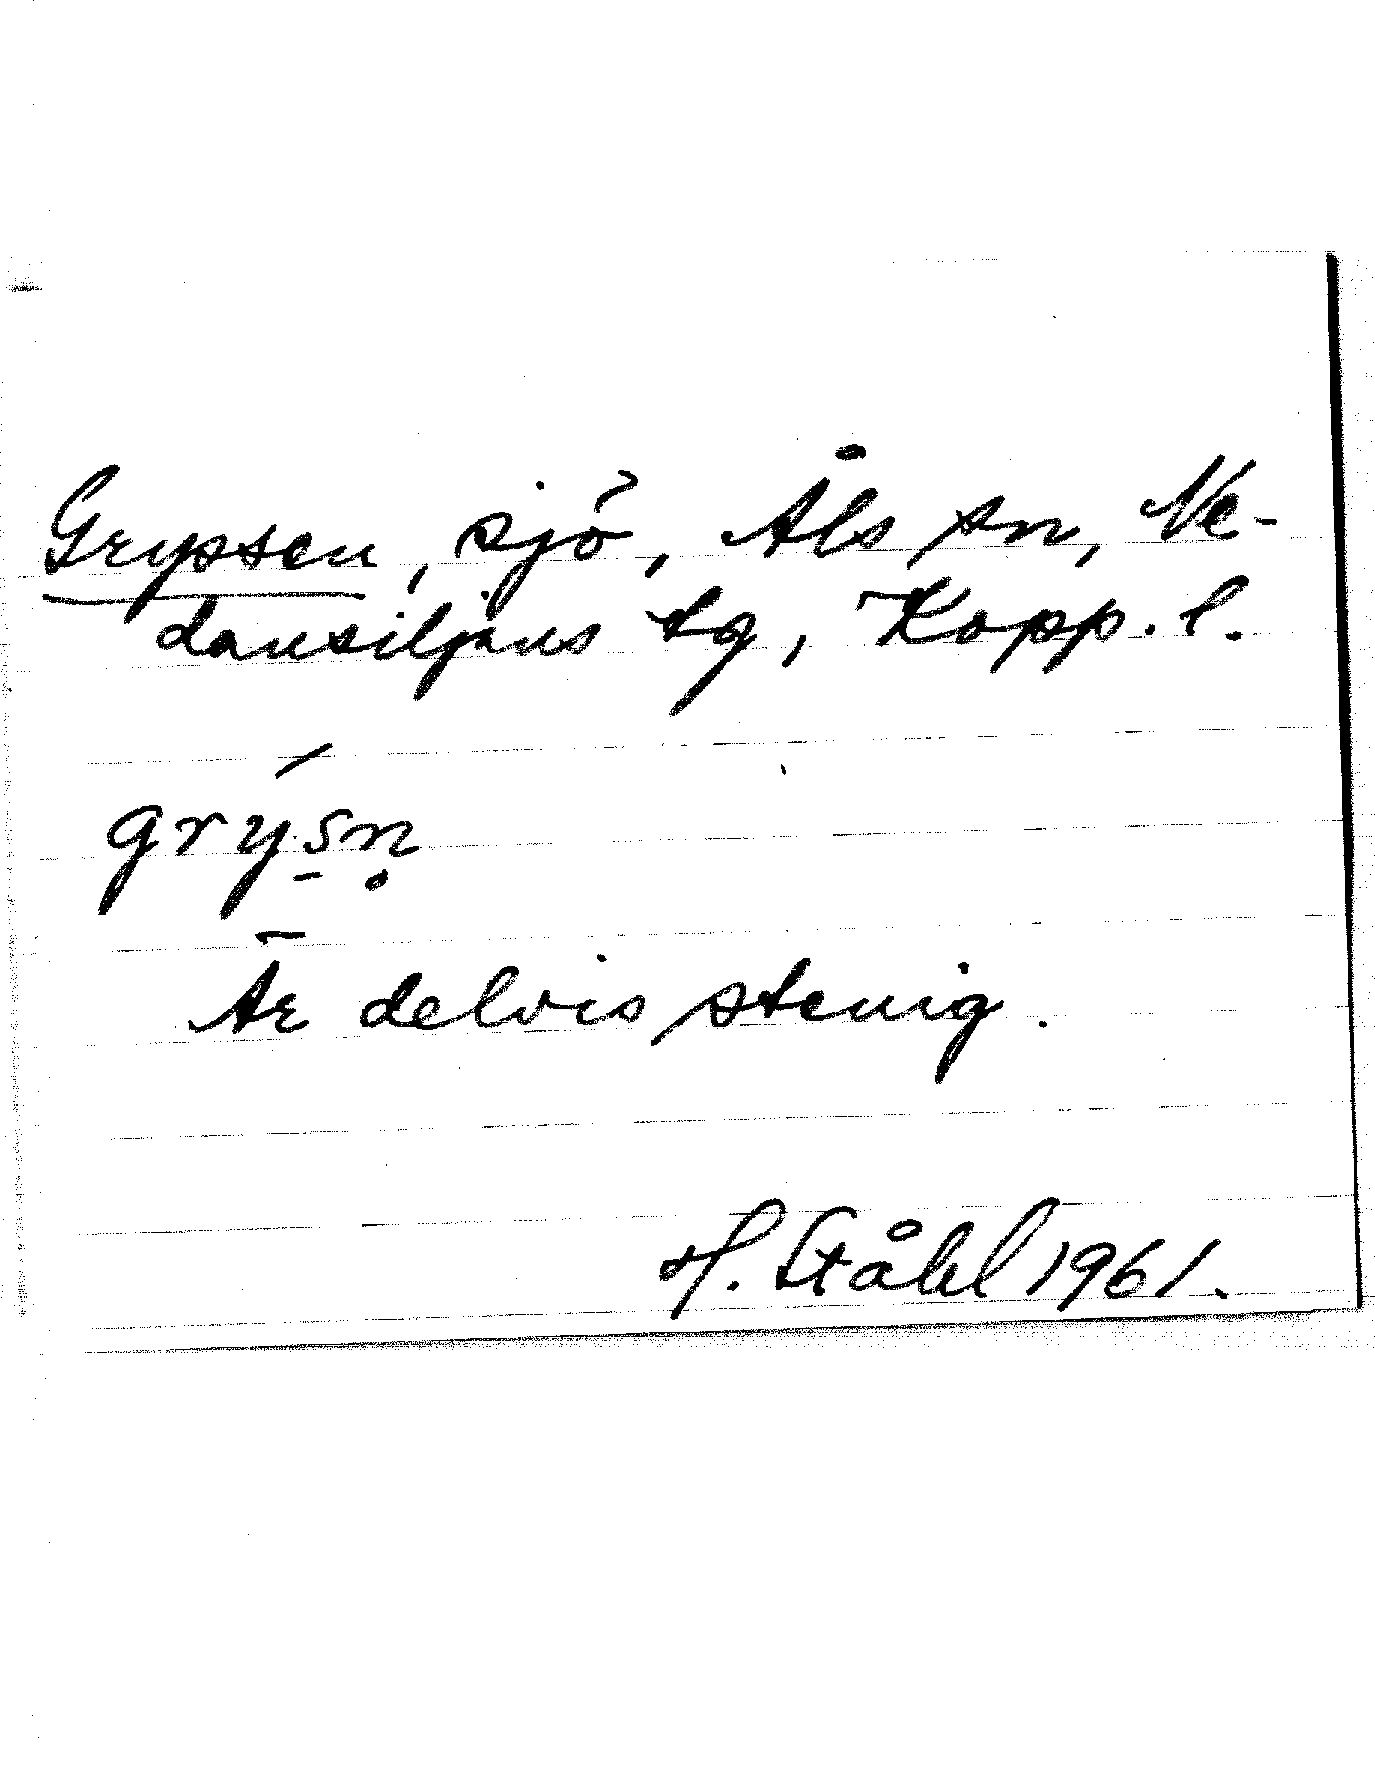 Gryssen, sjö, Åls sn, Ne-
dansiljans tg, Kopp. l.
grýsn̥
Är delvis stenig.
H. Ståhl 1961.